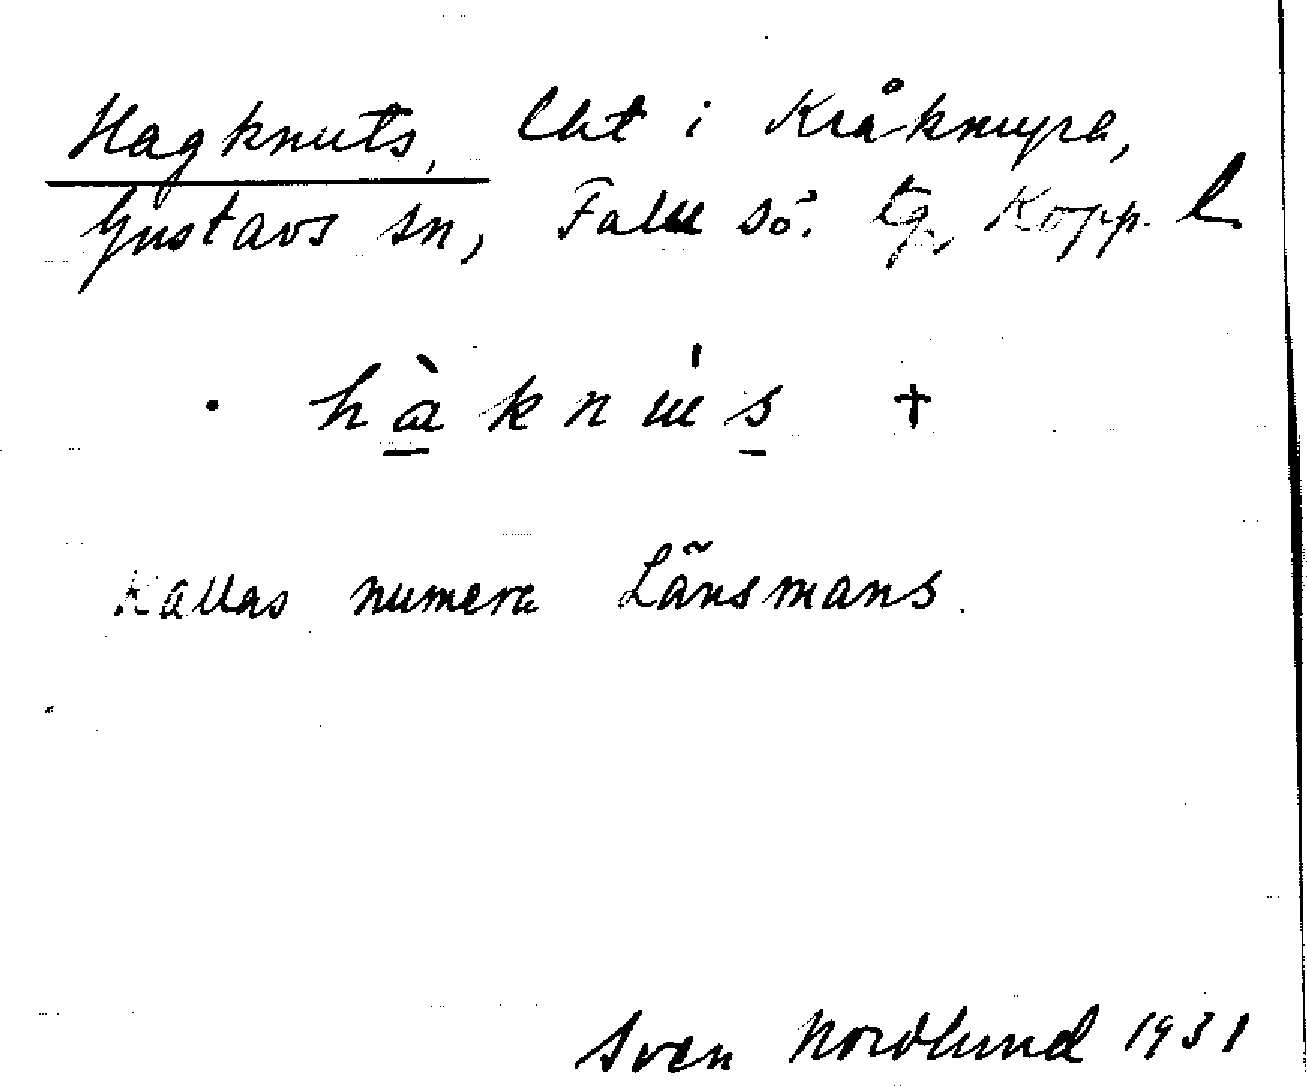 Hagknuts, lht i Kråkmyra,
Gustavs sn, Falu sö. tg, Kopp. l.
hàknùs +
Kallas numera Länsmans.
Sven Nordlund 1931